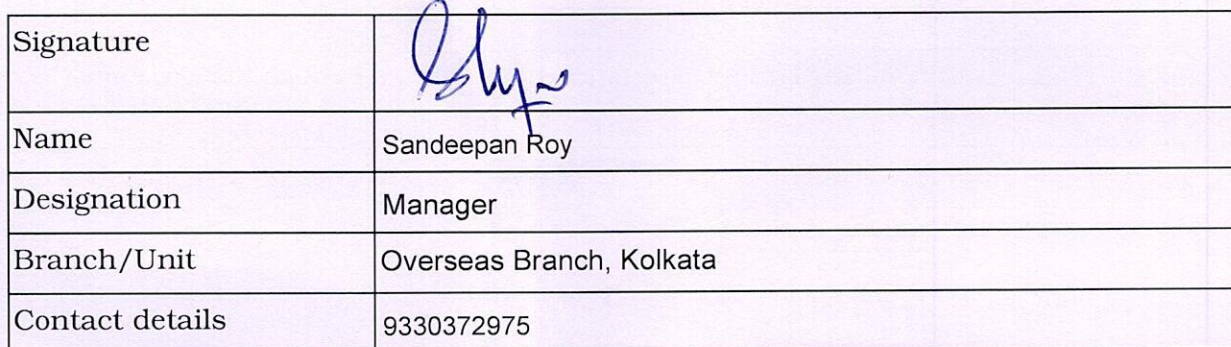 Signature
Name Sandeepan Roy
Designation Manager
Branch/Unit Overseas Branch, Kolkata
Contact details 9330372975